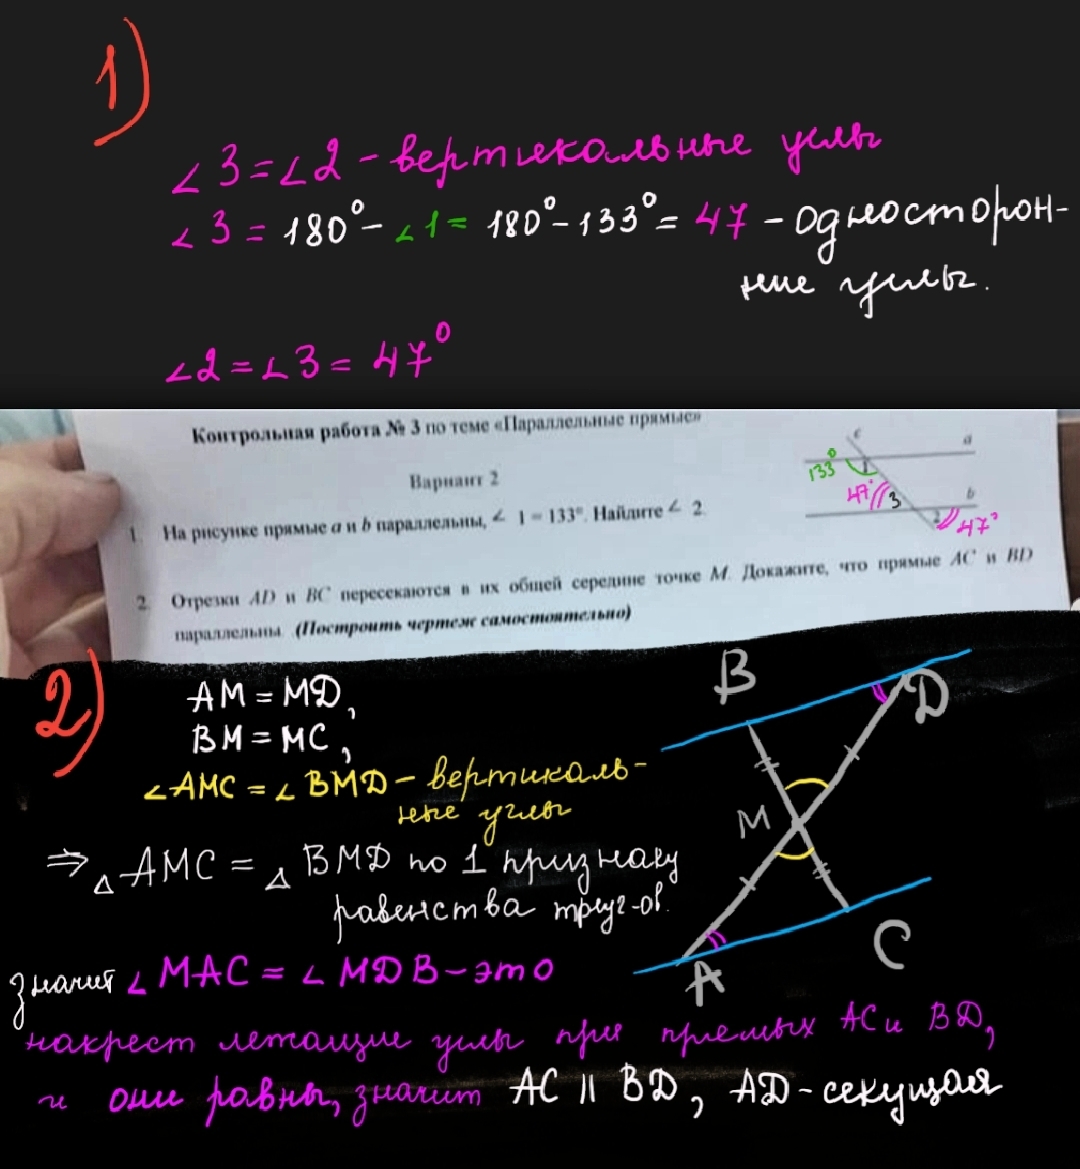 1)
∠3=∠2-вертикальные углы
∠3=180°-∠1=180°-133°=47-односторон-
ние углы.
∠2=∠3=47°
Контрольная работа № 3 по теме «Параллельные прямые»
Вариант 2
1. На рисунке прямые a и b параллельны, ∠ 1 = 133°. Найдите ∠ 2.
c
a
133°
1
47°
3
b
2
47°
2. Отрезки AD и BC пересекаются в их общей середине точке M. Докажите, что прямые AC и BD
параллельны. (Построить чертеж самостоятельно)
2)
AM=MD,
BM=MC,
∠AMC=∠BMD-вертикаль-
ные углы
⇒ △AMC=△BMD по 1 признаку
равенства треуг-ов.
значит ∠MAC=∠MDB-это
накрест лежащие углы при прямых AC и BD,
и они равны, значит AC || BD, AD-секущая
B
D
M
C
A